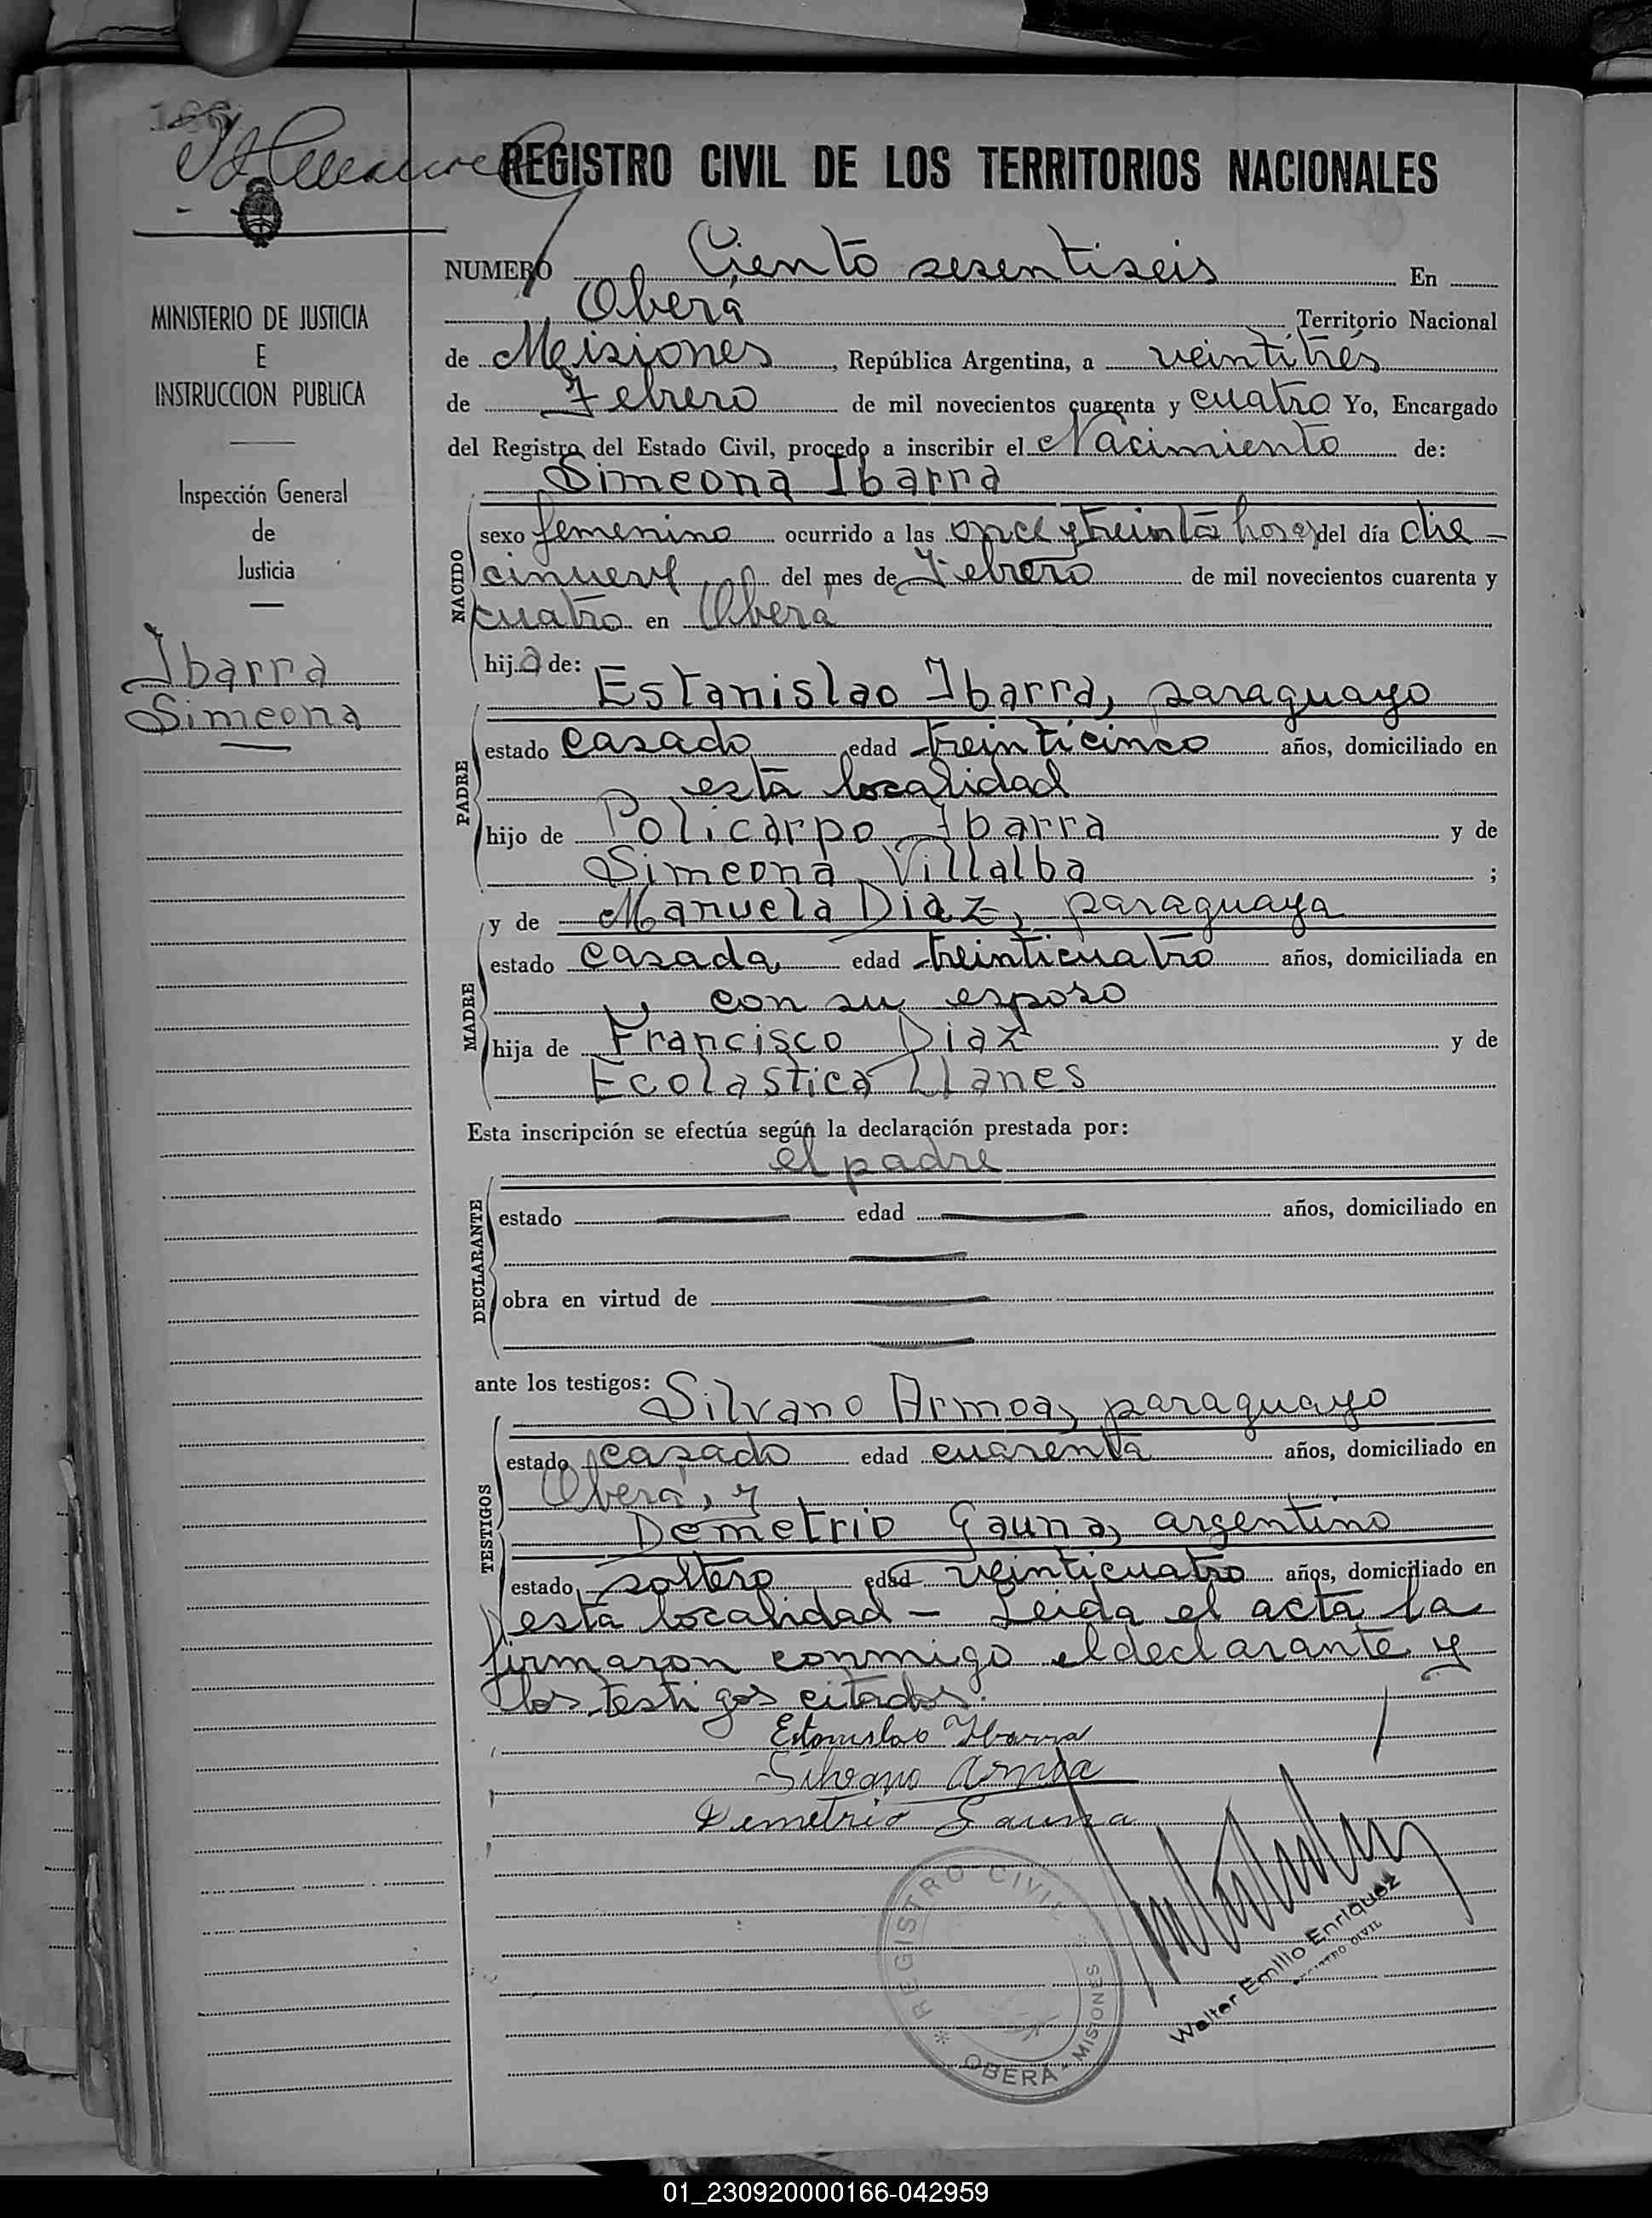 166
REGISTRO CIVIL DE LOS TERRITORIOS NACIONALES
MINISTERIO DE JUSTICIA
E
INSTRUCCION PUBLICA
Inspección General
de
Justicia
Ibarra
Simeona
NUMERO Ciento sesentiseis En
Oberá Territorio Nacional
de Misiones, República Argentina, a veintitrés
de Febrero de mil novecientos cuarenta y cuatro Yo, Encargado
del Registro del Estado Civil, procedo a inscribir el Nacimiento de:
Simeona Ibarra
NACIDO
sexo femenino ocurrido a las once y treinta horas del día die-
cinueve del mes de Febrero de mil novecientos cuarenta y
cuatro en Oberá
hija de:
Estanislao Ibarra, paraguayo
PADRE
estado casado edad treinticinco años, domiciliado en
esta localidad
hijo de Policarpo Ibarra y de
Simeona Villalba ;
y de Manuela Diaz, paraguaya
MADRE
estado casada edad treinticuatro años, domiciliada en
con su esposo
hija de Francisco Diaz y de
Ecolastica Llanes
Esta inscripción se efectúa según la declaración prestada por:
el padre
DECLARANTE
estado edad años, domiciliado en
obra en virtud de
ante los testigos: Silvano Armoa, paraguayo
TESTIGOS
estado casado edad cuarenta años, domiciliado en
Oberá, y
Demetrio Gauna, argentino
estado soltero edad veinticuatro años, domiciliado en
esta localidad - Leida el acta la
firmaron conmigo el declarante y
los testigos citados.
Estanislao Ibarra
Silvano Armoa
Demetrio Gauna
REGISTRO CIVIL
* OBERÁ - MISIONES
Walter Emilio Enriquez
REGISTRO CIVIL
01_230920000166-042959